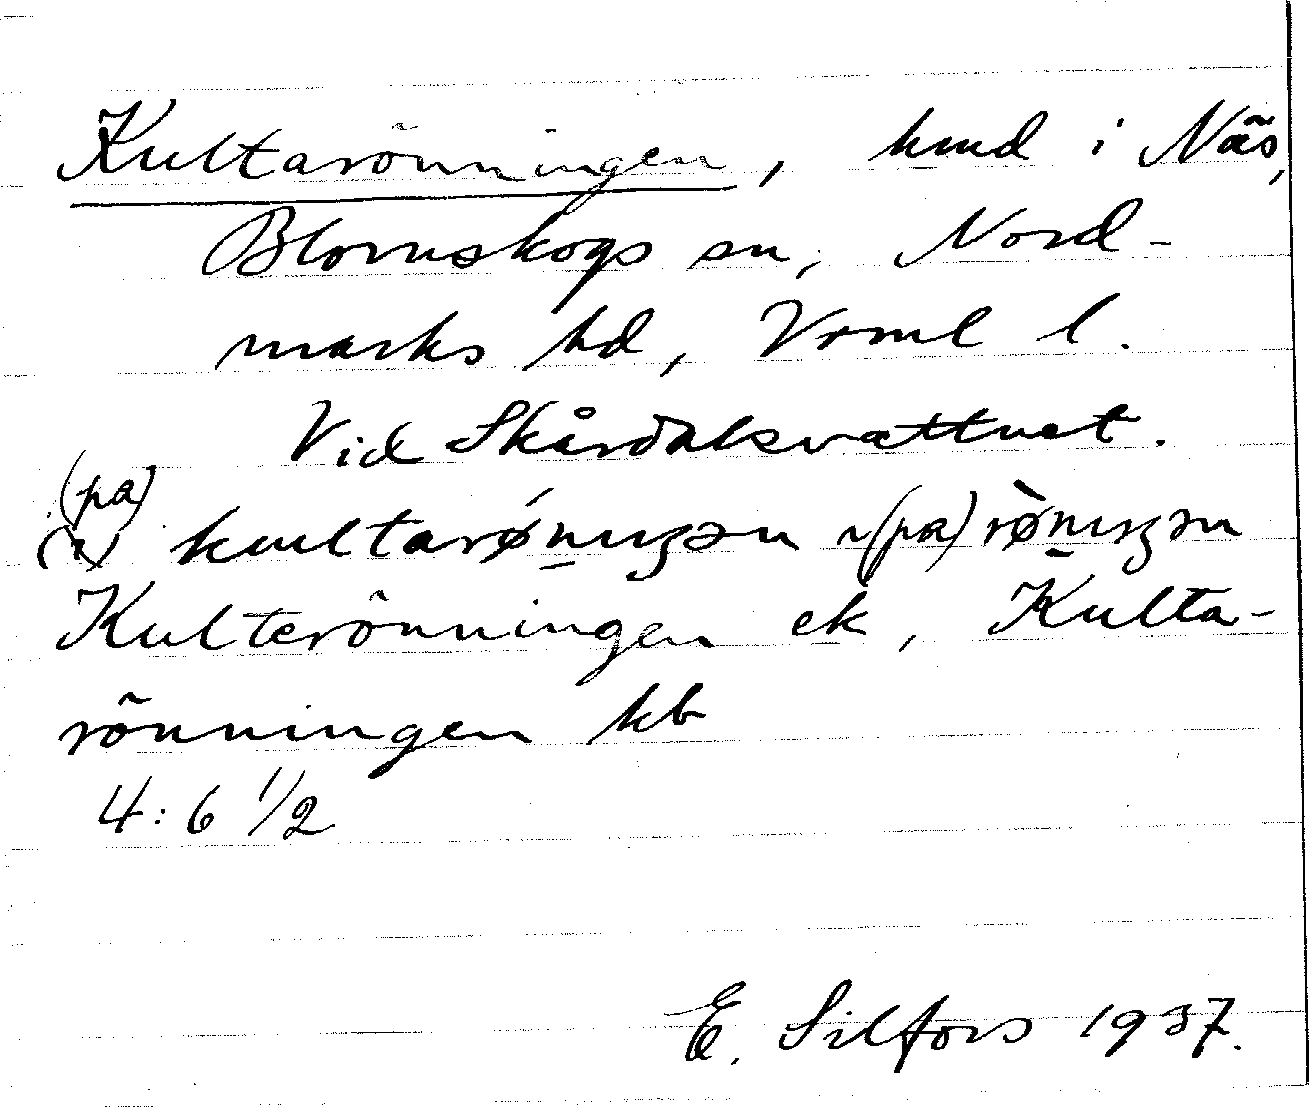 Kultarönningen, hmd i Näs,
Blomskogs sn, Nord-
marks hd, Vrml l.
Vid Skårdalsvattnet.
(pa)
kultarǿnıŋən (pa) rø̀nıŋən
Kulterönningen ek, Kulta-
rönningen kb
4:6 1/2
E. Silfors 1937.